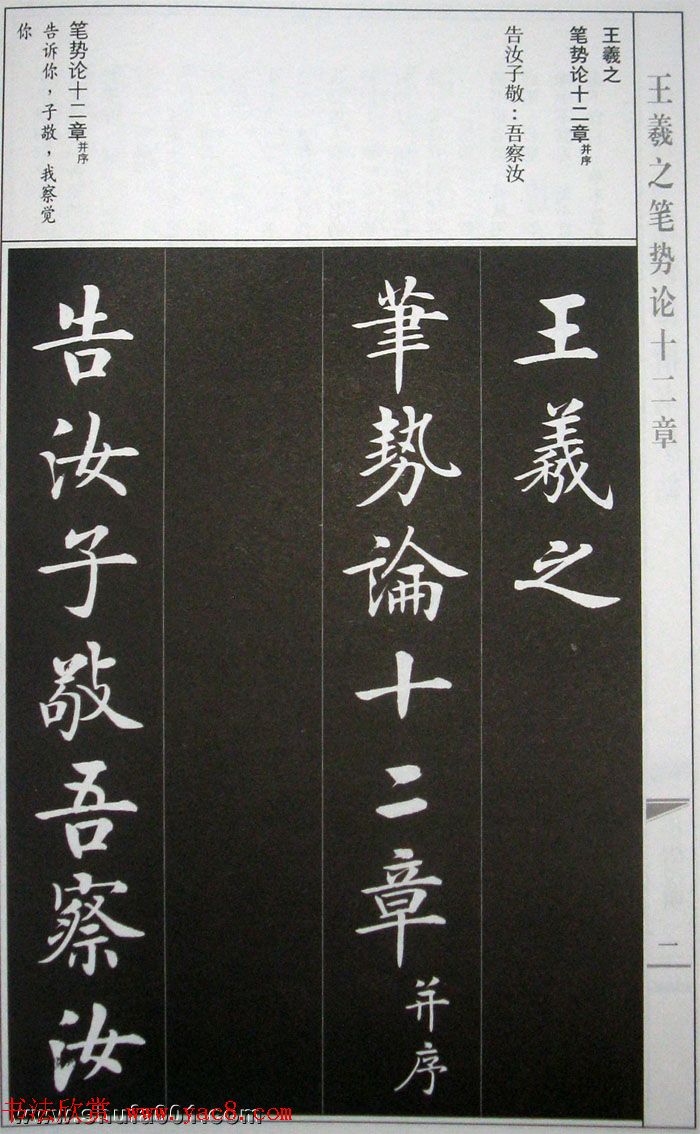 王羲之笔势论十二章
一
王羲之
笔势论十二章并序
告汝子敬：吾察汝
笔势论十二章并序
告诉你，子敬，我察觉
你
王羲之
筆勢論十二章并序
告汝子敬吾察汝
书法欣赏 www.yac8.com